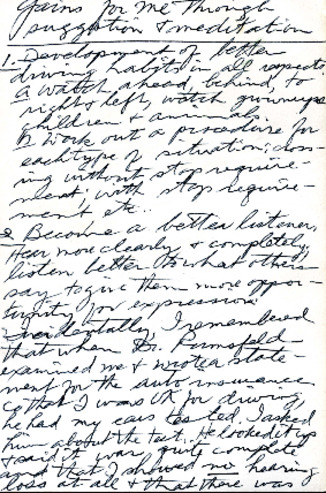 Gains for me through
suggestion & meditation
1. Development of better
driving habits in all respects
a watch ahead, behind, to
right & left, watch grownups
children & animals.
b Work out a procedure for
each type of situation; cross-
ing without stop require-
ment; with stop require-
ment etc..
2 Become a better listener,
Hear more clearly & completely,
listen better to what others
say to give them more oppor-
tunity for expression.
Incidentally, I remembered
that when Dr.
examined me & wrote a state-
ment for the auto insurance
co that I was OK for driving,
he had my ears tested, I asked
him about the test. He looked it up
& said it was quite complete
and that I showed no hearing
loss at all & that there was